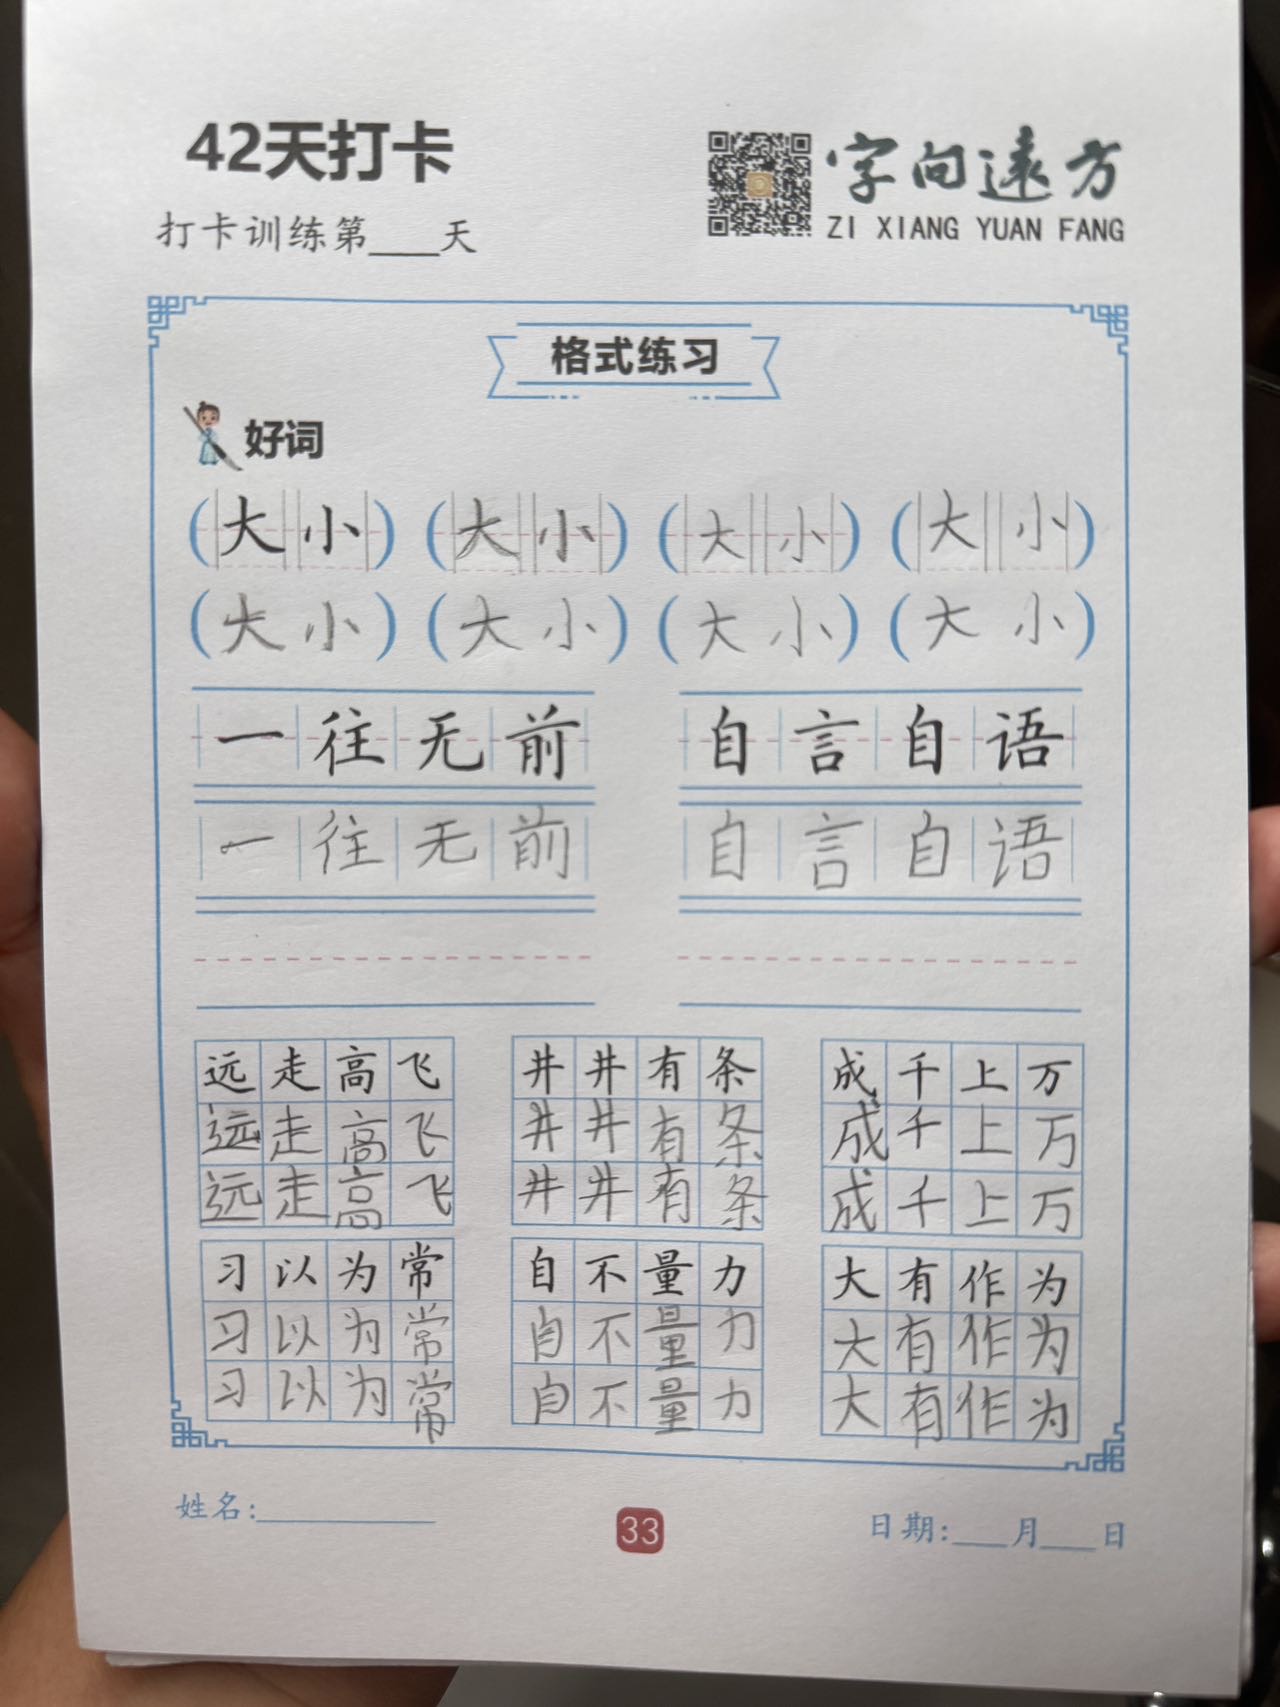 42天打卡
打卡训练第____天
字向遠方
ZI XIANG YUAN FANG
格式练习
好词
(大小) (大小) (大小) (大小)
(大小) (大小) (大小) (大小)
一往无前 自言自语
一往无前 自言自语
远走高飞 井井有条 成千上万
远走高飞 井井有条 成千上万
远走高飞 井井有条 成千上万
习以为常 自不量力 大有作为
习以为常 自不量力 大有作为
习以为常 自不量力 大有作为
姓名:__________ 33 日期:____月____日